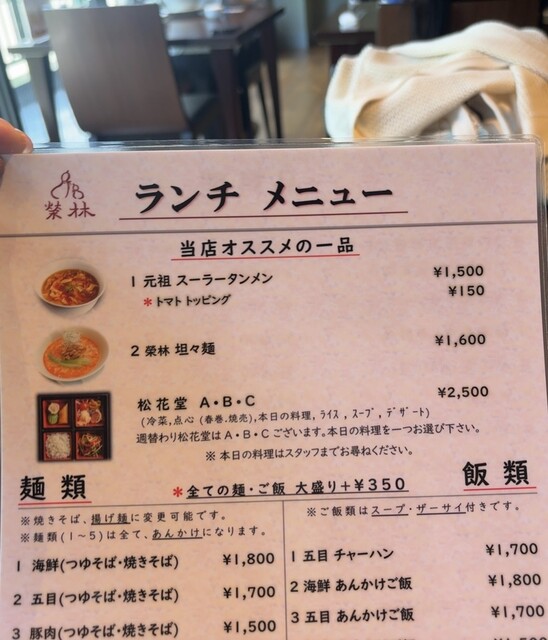 榮林
ランチ メニュー
当店オススメの一品
1 元祖 スーラータンメン ¥1,500
＊トマト トッピング ¥150
2 榮林 坦々麺 ¥1,600
松花堂 A・B・C ¥2,500
(冷菜,点心 (春巻.焼売),本日の料理, ﾗｲｽ , ｽｰﾌﾟ , ﾃﾞｻﾞｰﾄ)
週替わり松花堂はA・B・Cございます。本日の料理を一つお選び下さい。
※ 本日の料理はスタッフまでお尋ねください。
麺 類 ＊全ての麺・ご飯 大盛り＋¥350 飯 類
※焼きそば、揚げ麺に変更可能です。
※麺類(1～5)は全て、あんかけになります。
1 海鮮(つゆそば・焼きそば) ¥1,800
2 五目(つゆそば・焼きそば) ¥1,700
3 豚肉(つゆそば・焼きそば) ¥1,500
※ご飯類はスープ・ザーサイ付きです。
1 五目 チャーハン ¥1,700
2 海鮮 あんかけご飯 ¥1,800
3 五目 あんかけご飯 ¥1,700